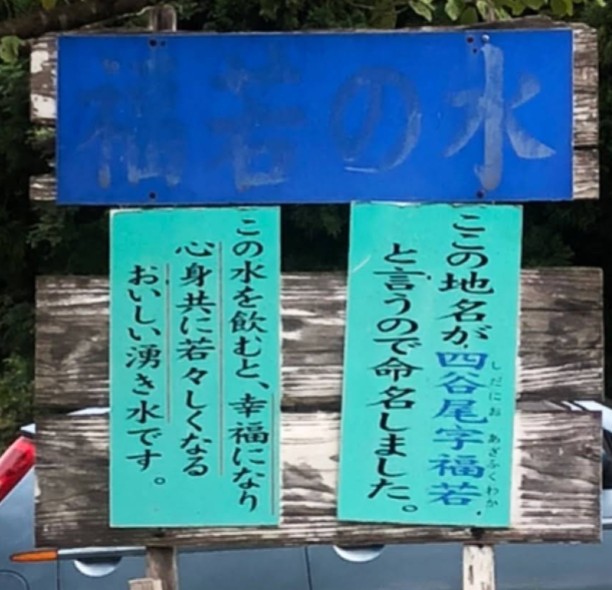 福若の水
ここの地名が四谷尾字福若
しだにお あざふくわか
と言うので命名しました。
この水を飲むと、幸福になり
心身共に若々しくなる
おいしい湧き水です。